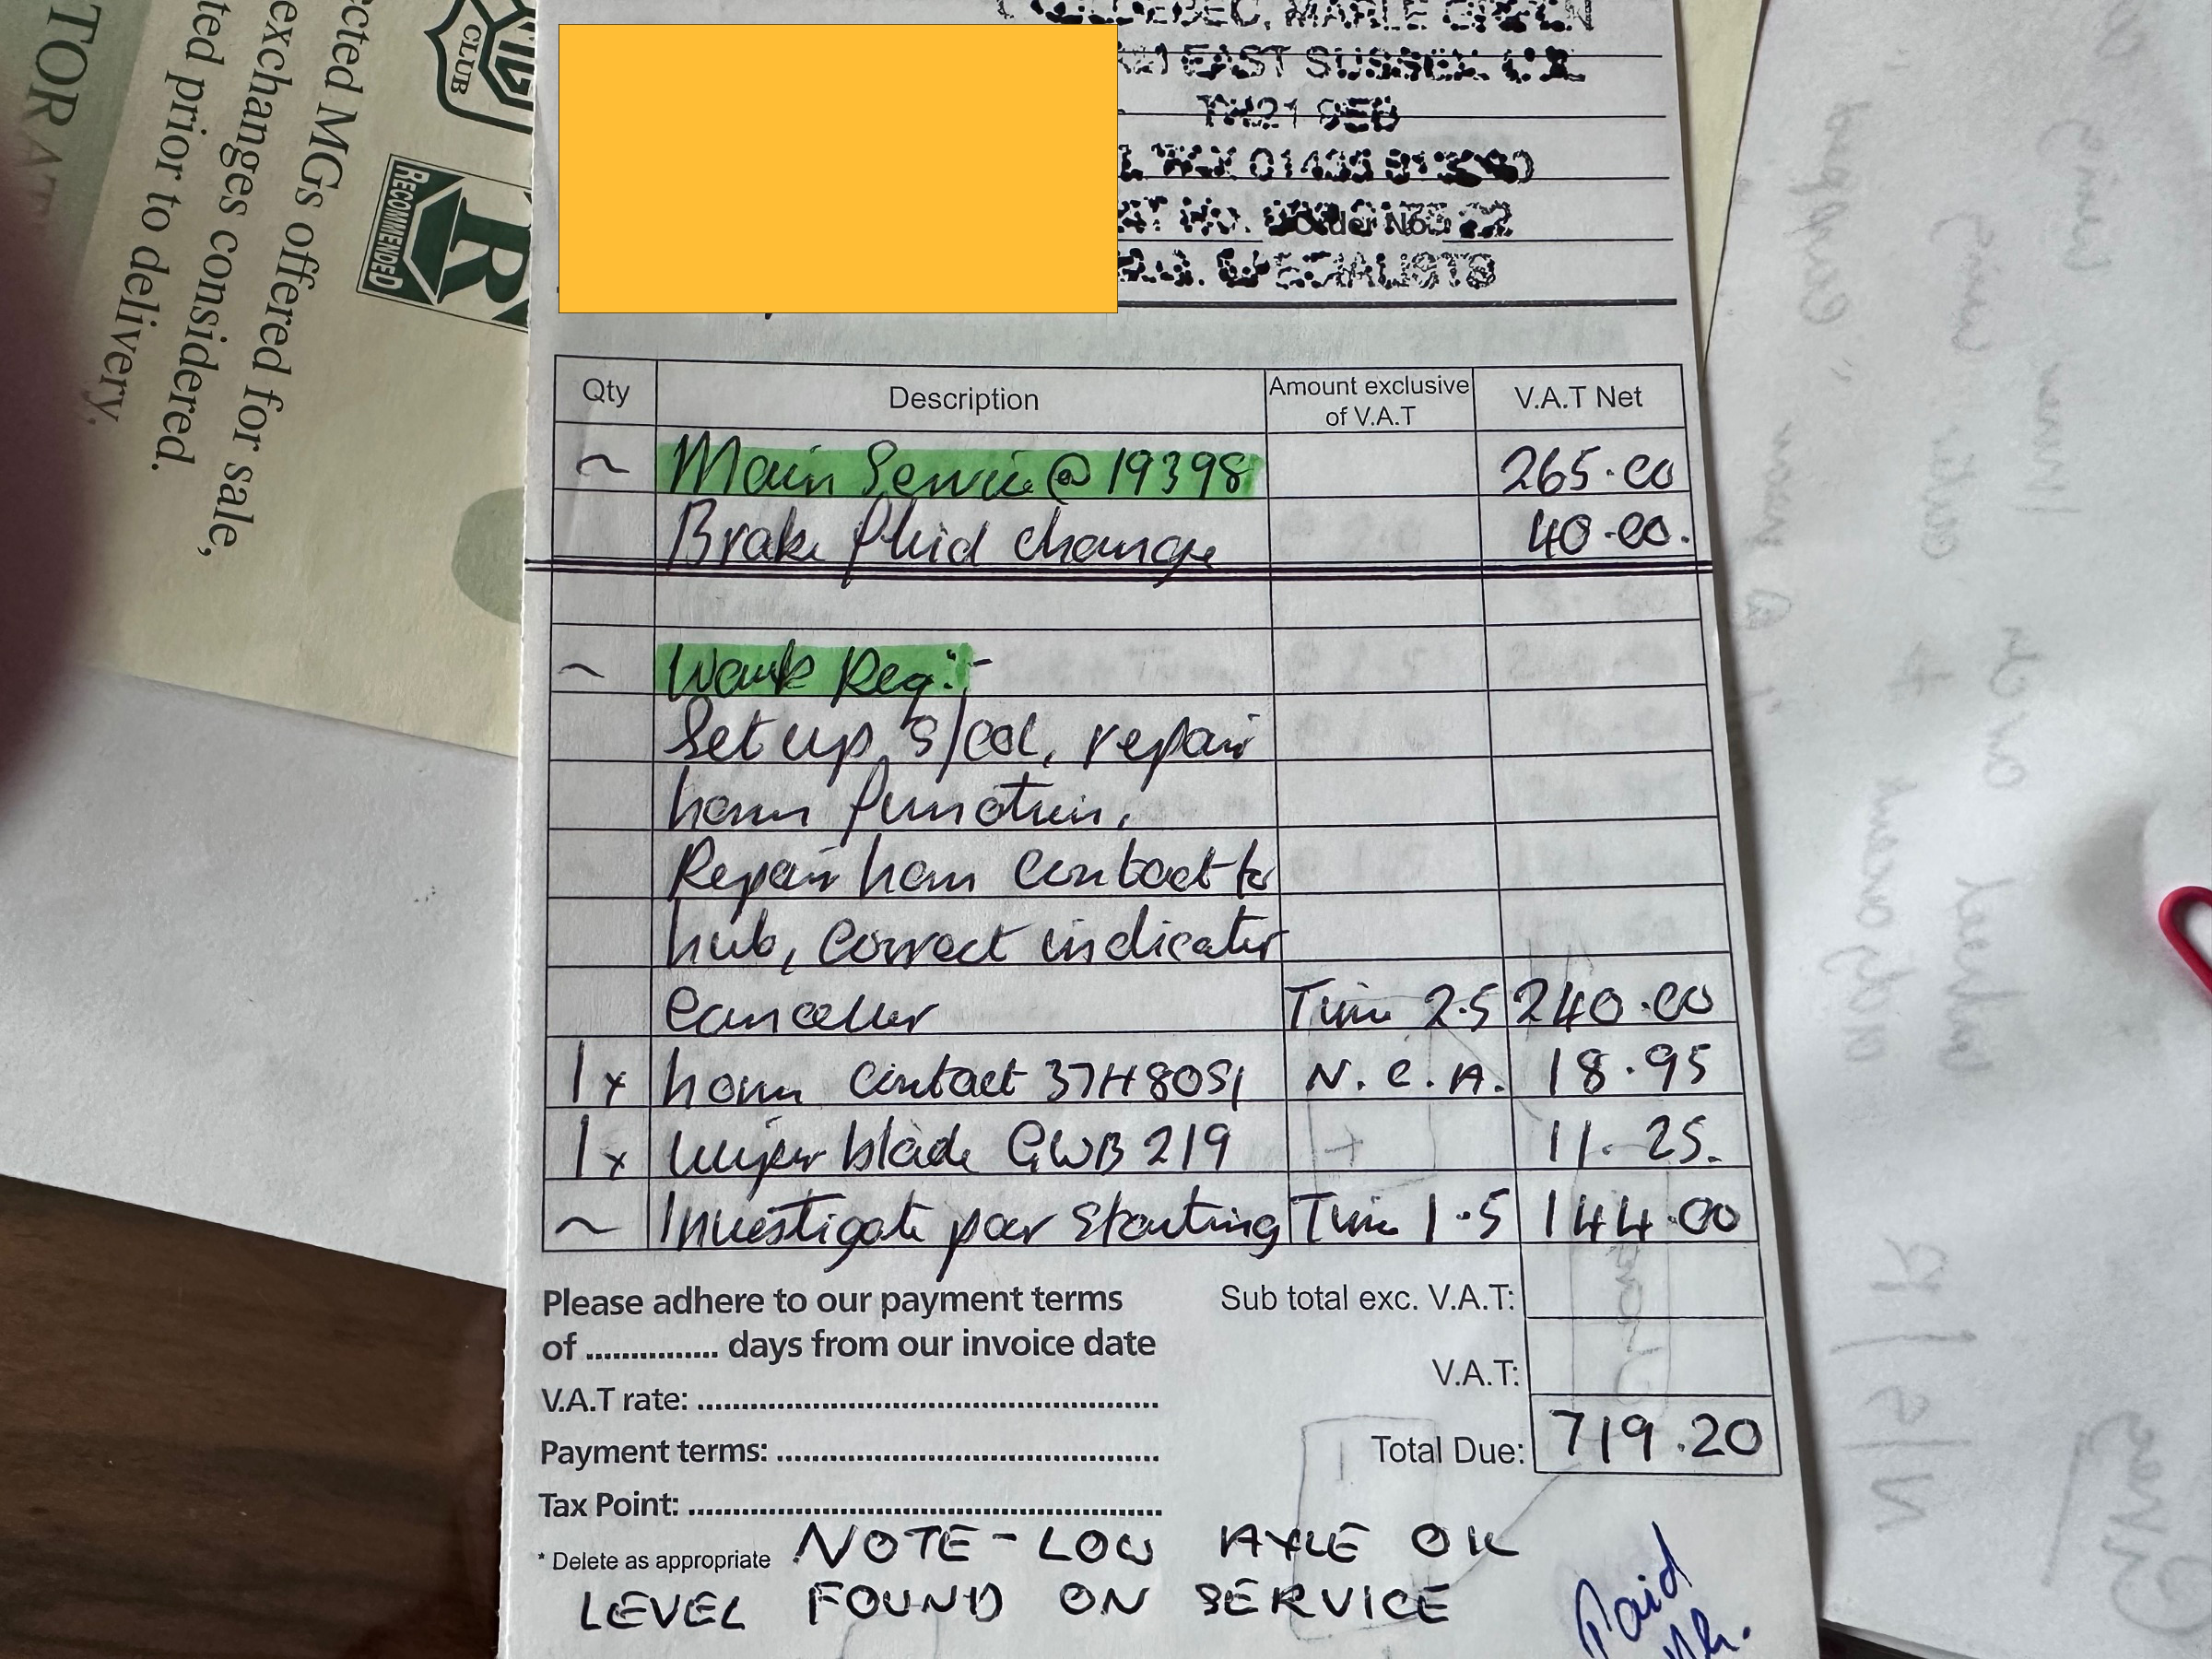 TOR
cted MGs offered for sale,
exchanges considered.
ted prior to delivery.
CLUB
RECOMMENDED
R
EAST SUSSEX
TN21 9EB
01435
Order No.
SPECIALISTS
Qty Description Amount exclusive of V.A.T V.A.T Net
~ Main Service @ 19398 265.00
Brake fluid change 40.00.
~ Work Req:-
Set up s/col, repair
horn function,
Repair horn contact to
hub, correct indicator
canceller Time 2.5 240.00
1x horn contact 37H8051 N.C.A. 18.95
1x wiper blade GWB 219 + 11.25.
~ Investigate poor starting Time 1.5 144.00
Please adhere to our payment terms
of ............... days from our invoice date
Sub total exc. V.A.T:
V.A.T rate:
V.A.T:
Payment terms:
Total Due: 719.20
Tax Point:
* Delete as appropriate
NOTE - LOW AXLE OIL
LEVEL FOUND ON SERVICE
Paid